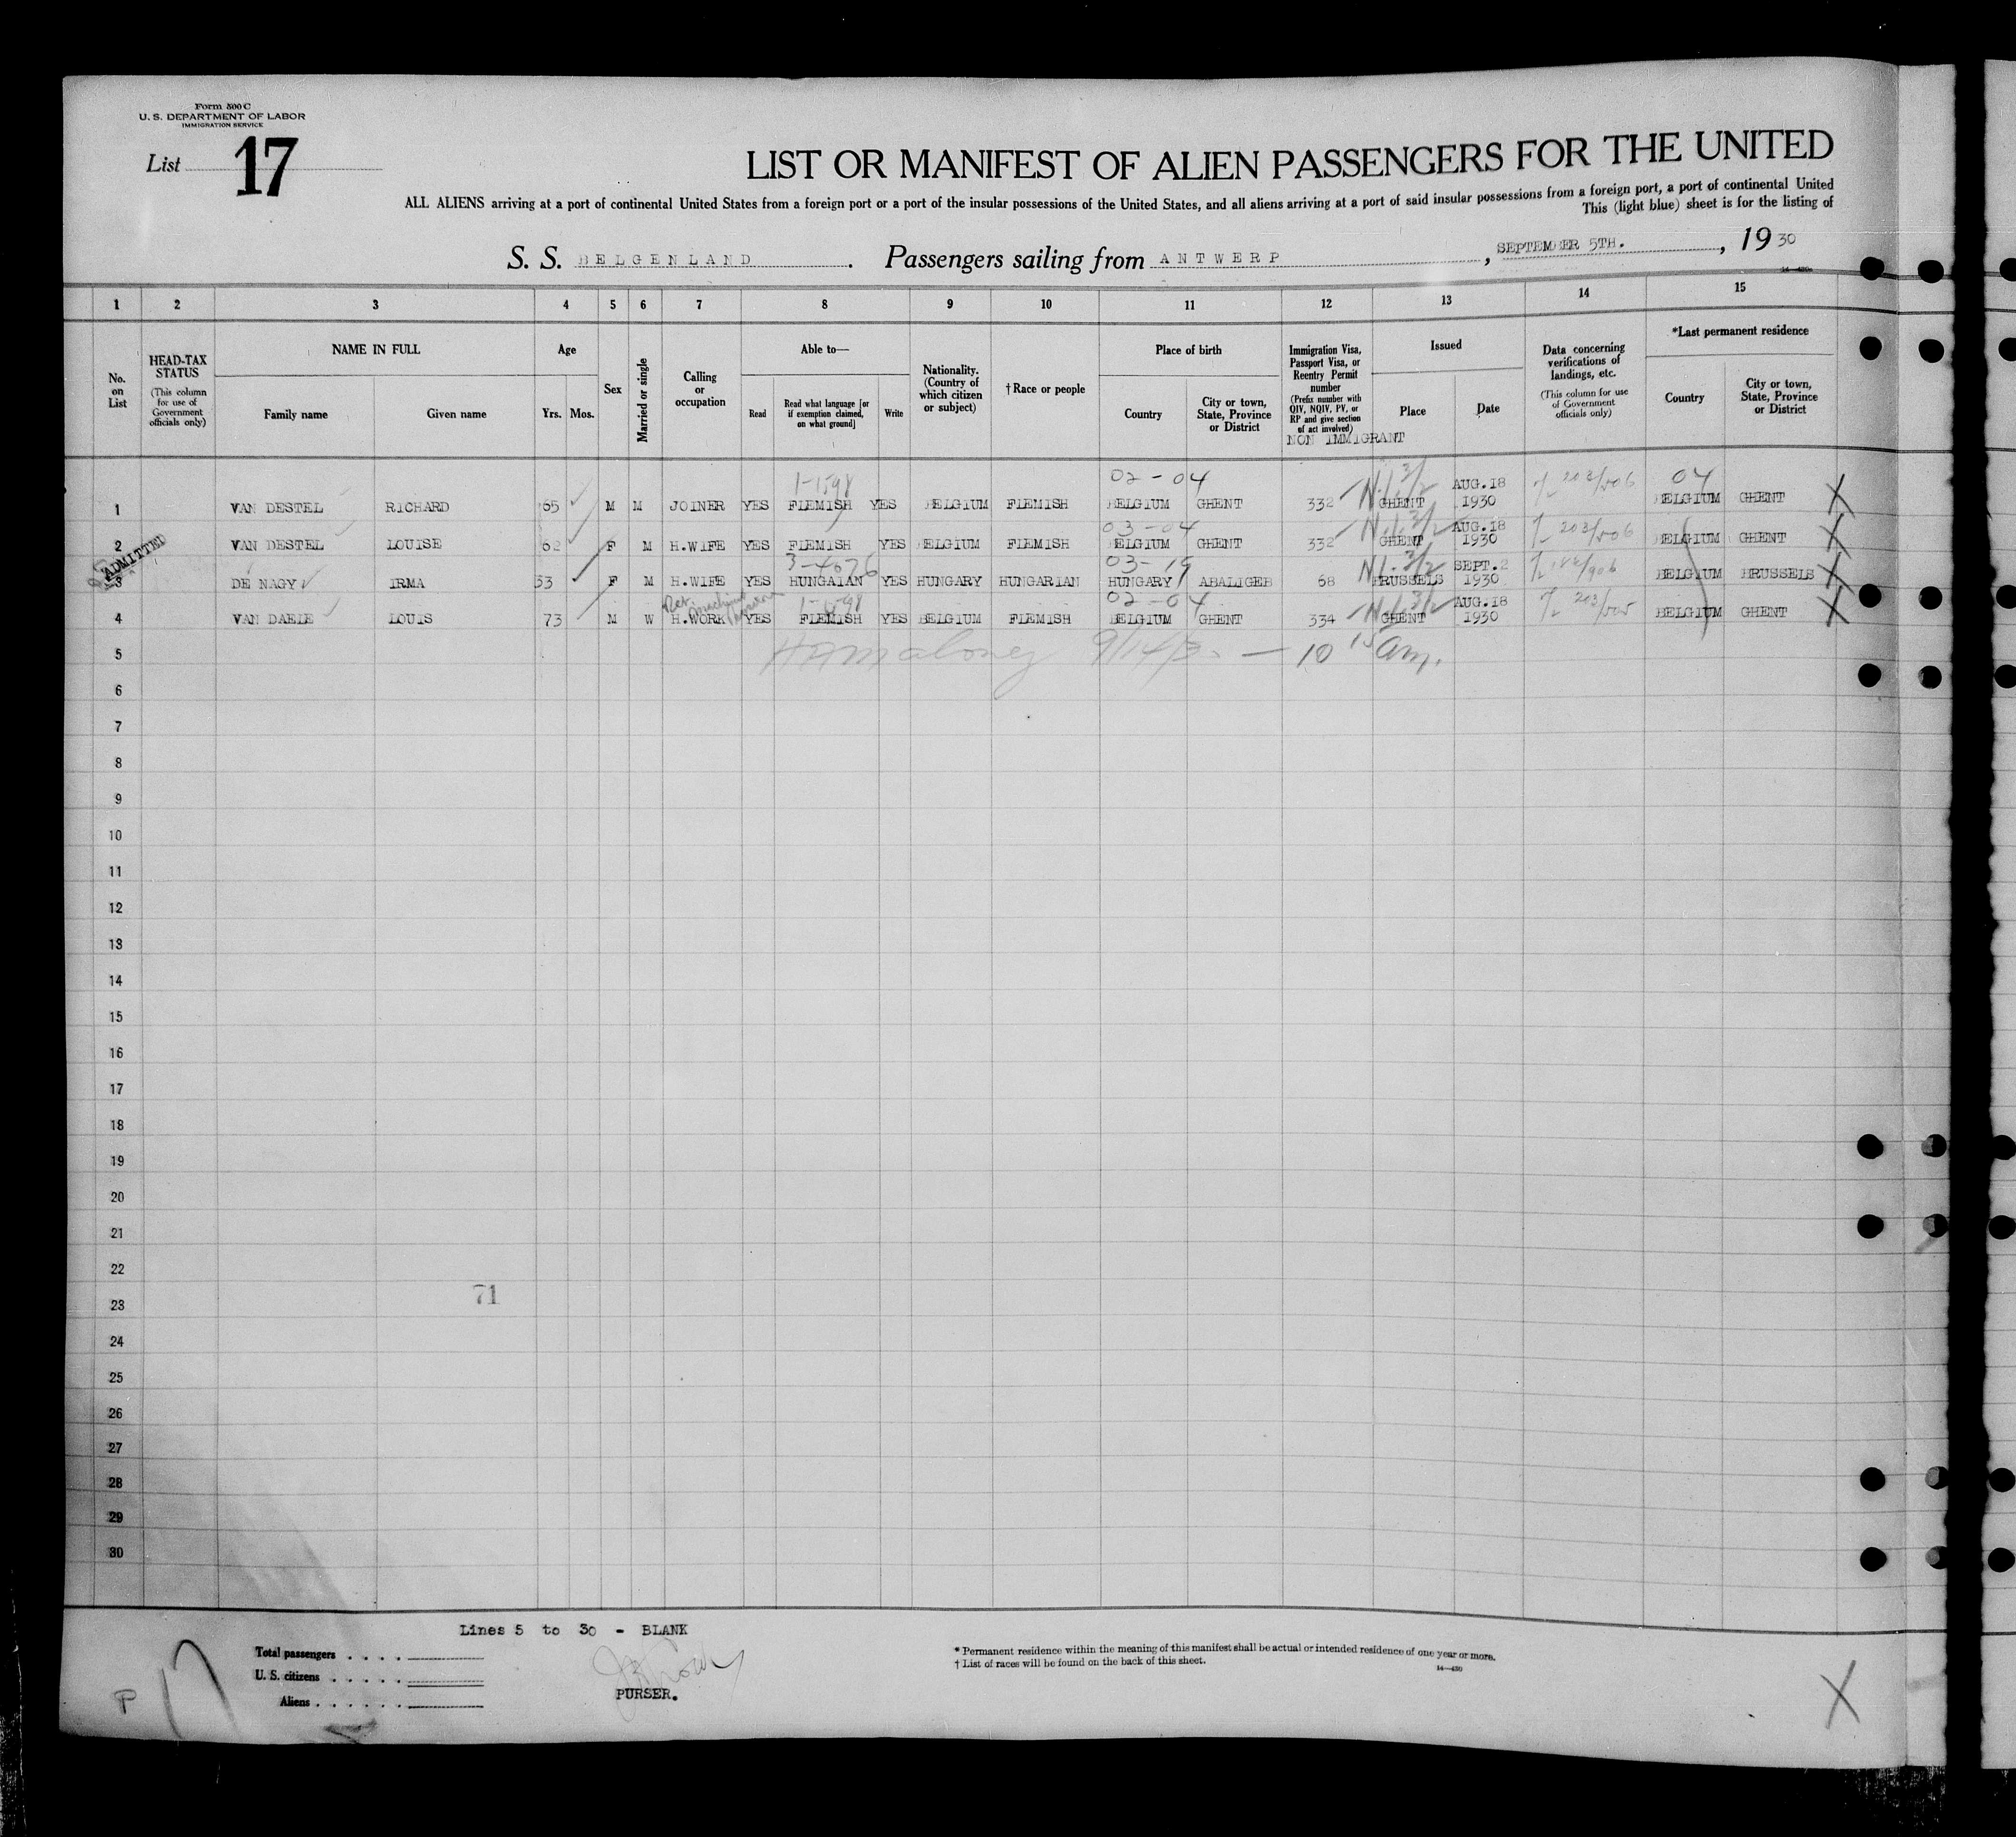 Form 500 C
U. S. DEPARTMENT OF LABOR
IMMIGRATION SERVICE
List 17
LIST OR MANIFEST OF ALIEN PASSENGERS FOR THE UNITED
ALL ALIENS arriving at a port of continental United States from a foreign port or a port of the insular possessions of the United States, and all aliens arriving at a port of said insular possessions from a foreign port, a port of continental United
This (light blue) sheet is for the listing of
S. S. BELGENLAND. Passengers sailing from ANTWERP, SEPTEMBER 5TH., 1930
1 2 3 4 5 6 7 8 9 10 11 12 13 14 15
No. on List
HEAD-TAX STATUS
(This column for use of Government officials only)
NAME IN FULL
Family name Given name
Age
Yrs. Mos.
Sex
Married or single
Calling or occupation
Able to—
Read
Read what language [or if exemption claimed, on what ground]
Write
Nationality. (Country of which citizen or subject)
† Race or people
Place of birth
Country
City or town, State, Province or District
Immigration Visa, Passport Visa, or Reentry Permit number
(Prefix number with QIV, NQIV, PV, or RP and give section of act involved)
NON IMMIGRANT
Issued
Place Date
Data concerning verifications of landings, etc.
(This column for use of Government officials only)
*Last permanent residence
Country
City or town, State, Province or District
1-1598 02-04 04
1 VAN DESTEL RICHARD 65 M M JOINER YES FLEMISH YES BELGIUM FLEMISH BELGIUM GHENT 332 GHENT AUG.18 1930 BELGIUM GHENT X
03-04
2 VAN DESTEL LOUISE 62 F M H.WIFE YES FLEMISH YES BELGIUM FLEMISH BELGIUM GHENT 332 GHENT AUG.18 1930 BELGIUM GHENT X
ADMITTED
3-4076 03-19
3 DE NAGY IRMA 53 F M H.WIFE YES HUNGAIAN YES HUNGARY HUNGARIAN HUNGARY ABALIGEB 68 BRUSSELS SEPT.2 1930 BELGIUM BRUSSELS X
02-04
4 VAN DAELE LOUIS 73 M W H.WORK YES FLEMISH YES BELGIUM FLEMISH BELGIUM GHENT 334 GHENT AUG.18 1930 BELGIUM GHENT X
5 10 15 am.
6
7
8
9
10
11
12
13
14
15
16
17
18
19
20
21
22
71
23
24
25
26
27
28
29
30
Lines 5 to 30 - BLANK
Total passengers
U. S. citizens
Aliens
PURSER.
* Permanent residence within the meaning of this manifest shall be actual or intended residence of one year or more.
† List of races will be found on the back of this sheet.
14—430
P 17
X